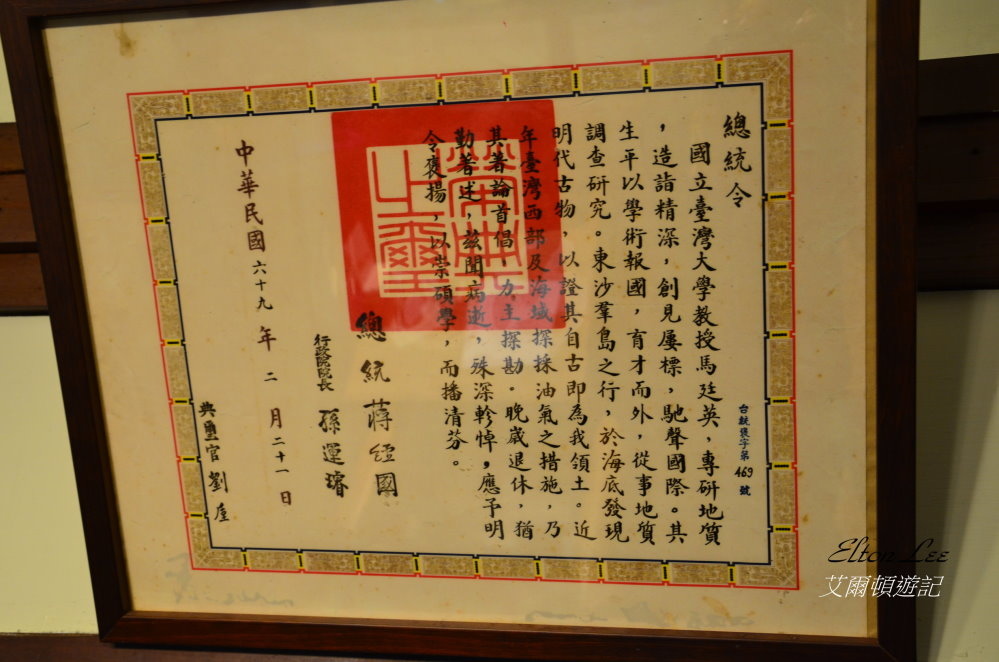 總統令
國立臺灣大學教授馬廷英，專研地質
，造詣精深，創見屢標，馳聲國際。其
生平以學術報國，育才而外，從事地質
調查研究。東沙羣島之行，於海底發現
明代古物，以證其自古即為我領土。近
年臺灣西部及海域探採油氣之措施，乃
其著論首倡 力主探勘。晚歲退休，猶
勤著述，茲聞病逝，殊深軫悼，應予明
令褒揚，以崇碩學，而播清芬。
總統 蔣經國
行政院院長 孫運璿
中華民國六十九年二月二十一日
典璽官劉垕
台統褒字第469號
榮典之璽
Elton Lee
艾爾頓遊記